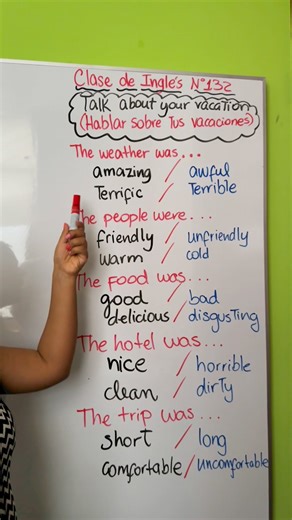 Clase de Inglés N°132
Talk about your vacation
(Hablar sobre Tus vacaciones)
The weather was...
amazing / awful
Terrific / Terrible
The people were...
friendly / unfriendly
warm / cold
The Food was...
good / bad
delicious / disgusting
The hotel was...
nice / horrible
clean / dirty
The trip was...
short / long
comfortable / uncomfortable